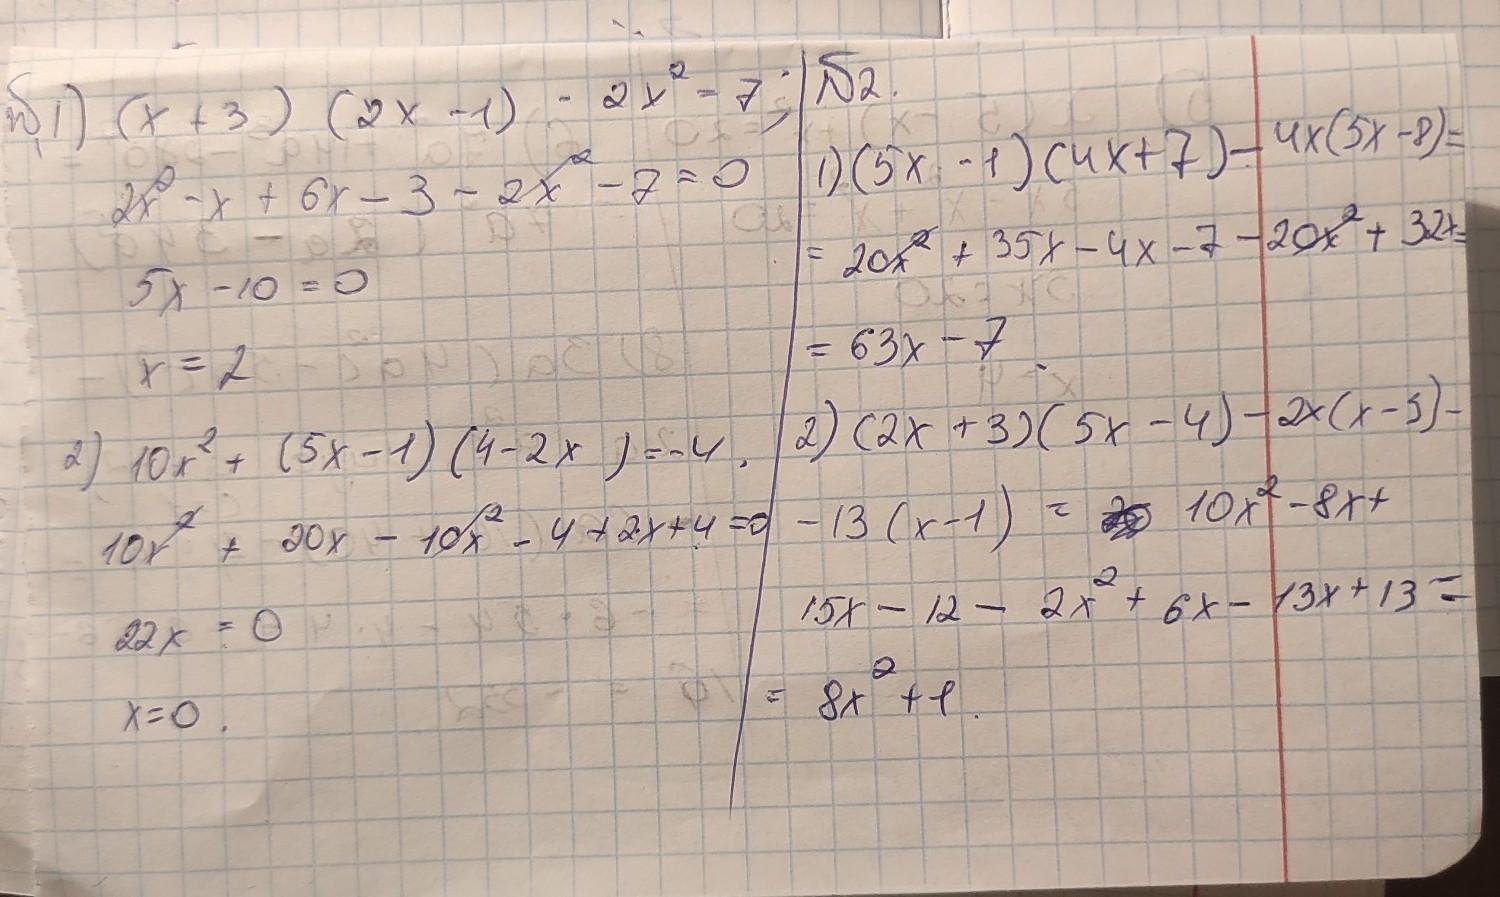 №1) (x+3) (2x-1) - 2x² - 7;
2x² - x + 6x - 3 - 2x² - 7 = 0
5x - 10 = 0
x = 2
2) 10x² + (5x-1)(4-2x) = -4.
10x² + 20x - 10x² - 4 + 2x + 4 = 0
22x = 0
x=0.
№2.
1) (5x-1)(4x+7) - 4x(5x-8) =
= 20x² + 35x - 4x - 7 - 20x² + 32x =
= 63x - 7.
2) (2x+3)(5x-4) - 2x(x-3) -
- 13(x-1) = 10x² - 8x +
15x - 12 - 2x² + 6x - 13x + 13 =
= 8x² + 1.